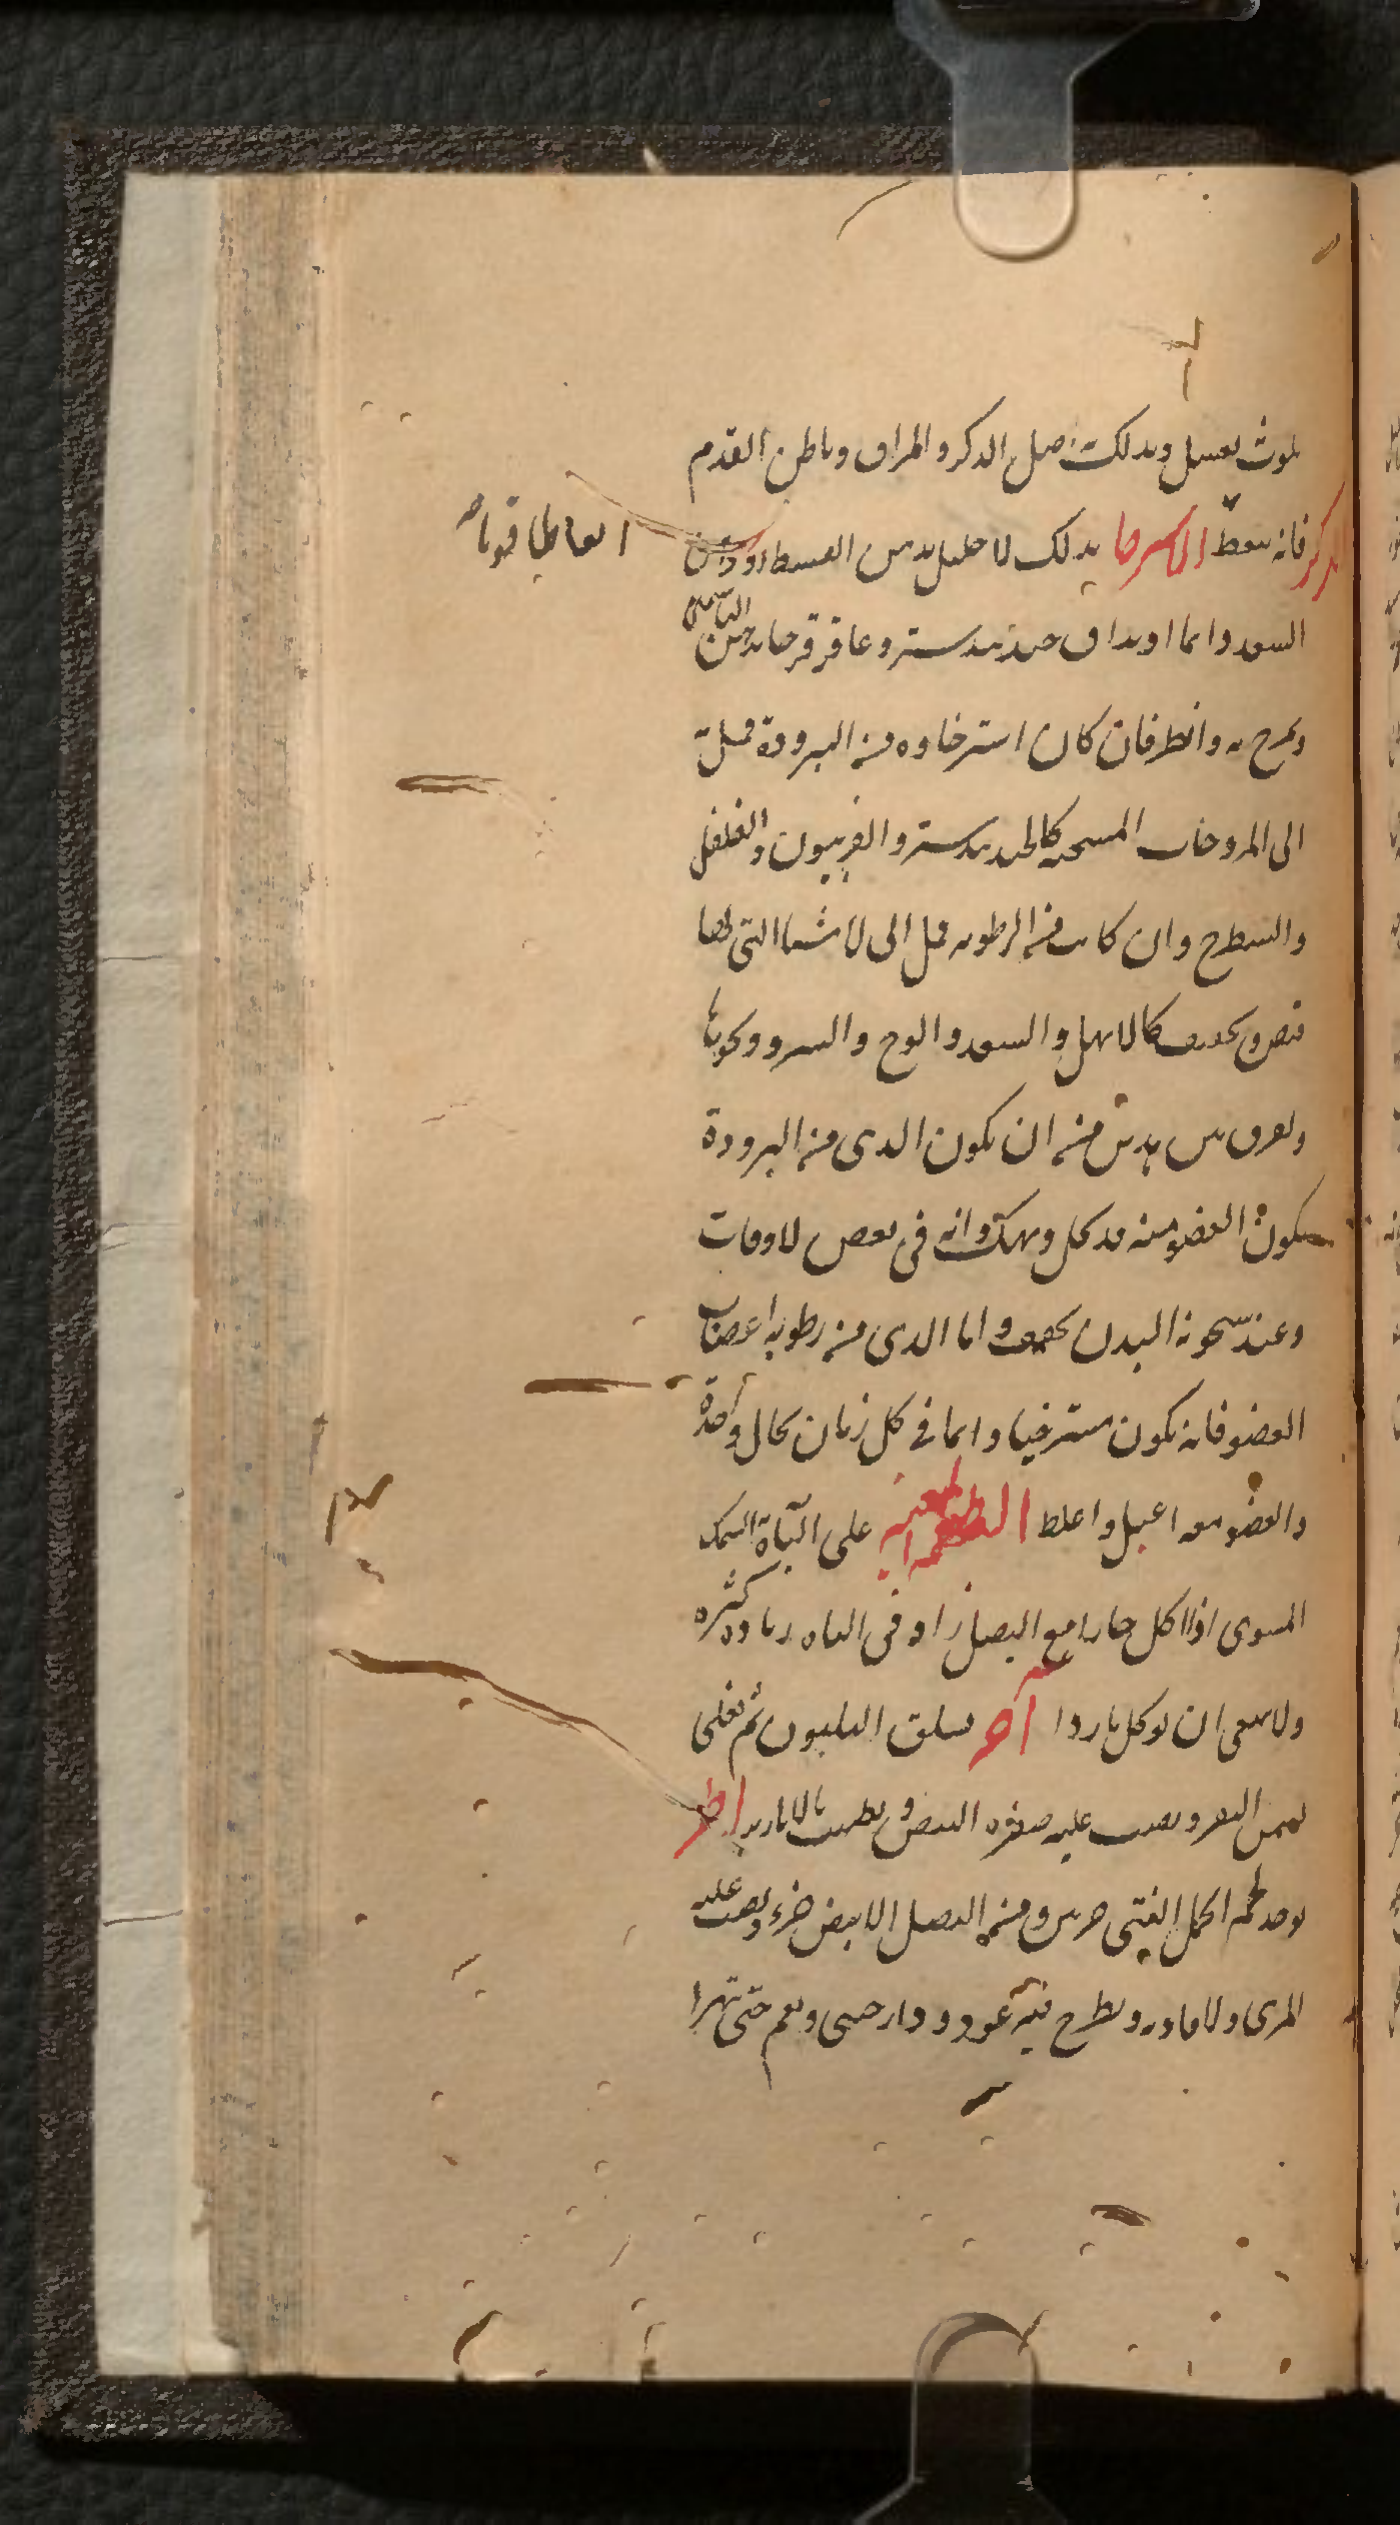 بلوث بعسل ويدلك به اصل الذكر والمراق وباطن القدم
فانه ينعظ للاسترخا يدلك الاحليل بدهن القسط او دهن
انعاظا قويا
السعد دائما او يداف جندبيدستر وعاقرقرحا بدهن الياسمين
ويمرخ به وانظر فان كان استرخاوه من البرودة فمل به
الى المروخات المسخنه كالجندبيدستر والفربيون والفلفل
والشيطرج وان كانت من الرطوبه فمل الى الاشيا التى لها
قبض وتجفيف كالابهل والسعد والوج والسرو ونحوها
وتعرف بين هذين من ان يكون الذى من البرودة
يكون العضو منه قد نحل وانه فى بعض الاوقات
وعند سخونة البدن يخف واما الذى من رطوبة اعصاب
العضو فانه يكون مسترخيا دائما فى كل زمان بحال واحدة
والعضو معه اعبل واغلظ على الباة السمك
المشوى اذا اكل حارا مع البصل زاد فى الباه زيادة كثيره
ولا ينبغى ان يوكل باردا آخر يسلق الهليون ثم يغلى
بسمن البقر ويصب عليه صفرة البيض ويطيب بالابازير اخر
يوخذ لحم الحمل الفتى جزين ومن البصل الابيض جزء ويصب عليه
المرى والافاويه ويطرح فيه عود ودارصينى ويعمم حتى تهرا